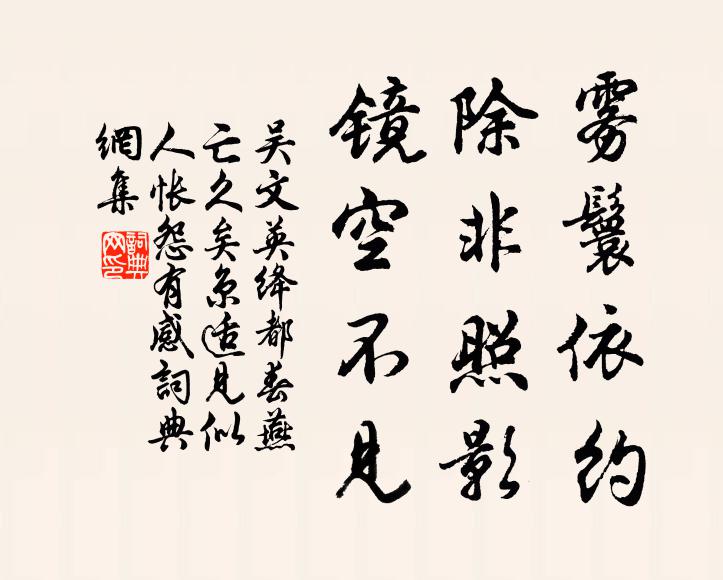 雾鬟依约
除非照影
镜空不见
吴文英绛都春燕
亡久矣京适见似
人怅怨有感詞典
網集
詞典
网印